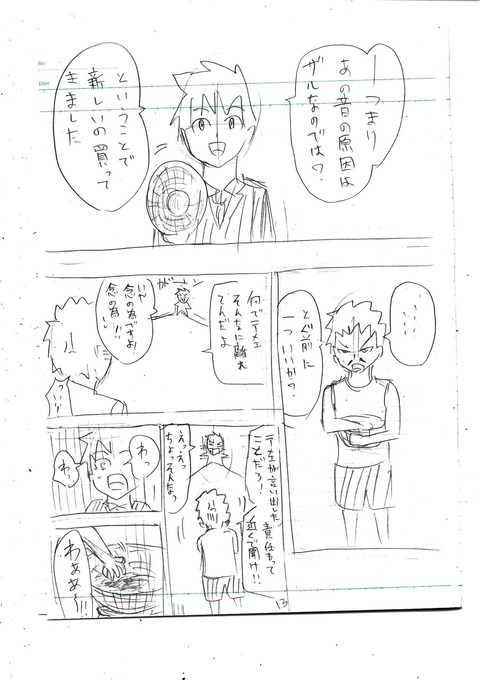 ーつまり
あの音の原因は
ザルなのでは?
ということで
新しいの買って
きました
……
とぐ前に
一ついいか?
何でテメェ
そんなに離れ
てんだよ
ガーン
いや
念の為ですよ
念の為…!!
テメェが言い出した
ことだろ!
責任もって
近くで聞け!!
えっえっ
ちょっそんなっ
わっ
わっ
わああー!!
13
No
Date